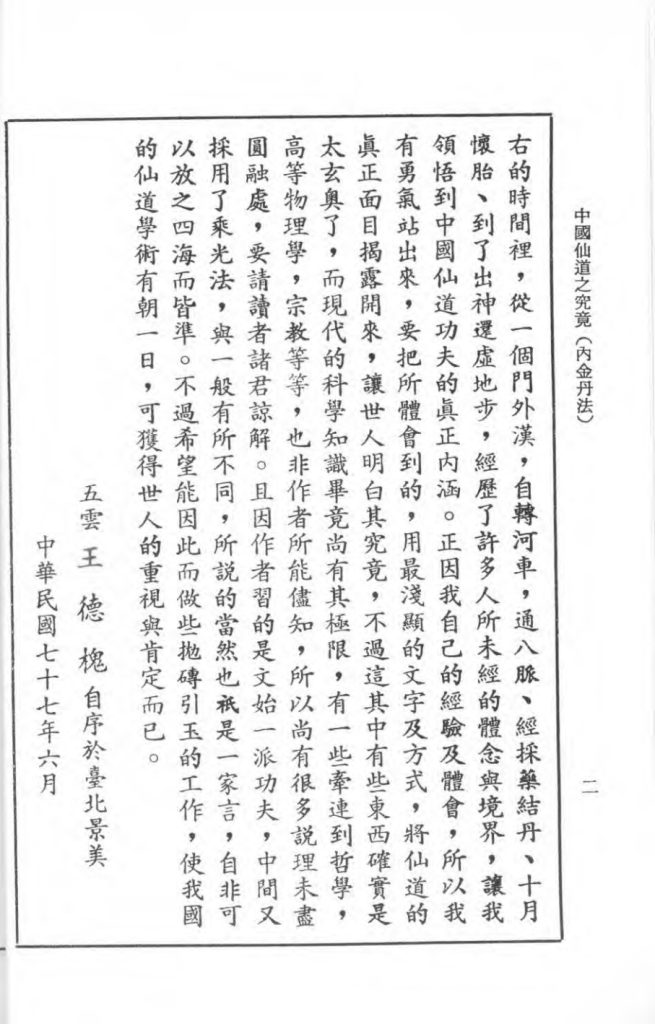 中國仙道之究竟（內金丹法）
二
右的時間裡，從一個門外漢，自轉河車，通八脈、經採藥結丹、十月
懷胎、到了出神還虛地步，經歷了許多人所未經的體念與境界，讓我
領悟到中國仙道功夫的眞正內涵。正因我自己的經驗及體會，所以我
有勇氣站出來，要把所體會到的，用最淺顯的文字及方式，將仙道的
眞正面目揭露開來，讓世人明白其究竟，不過這其中有些東西確實是
太玄奧了，而現代的科學知識畢竟尚有其極限，有一些牽連到哲學，
高等物理學，宗教等等，也非作者所能儘知，所以尚有很多説理未盡
圓融處，要請讀者諸君諒解。且因作者習的是文始一派功夫，中間又
採用了乘光法，與一般有所不同，所說的當然也祇是一家言，自非可
以放之四海而皆準。不過希望能因此而做些拋磚引玉的工作，使我國
的仙道學術有朝一日，可獲得世人的重視與肯定而已。
五雲 王 德 槐 自序於臺北景美
中華民國七十七年六月